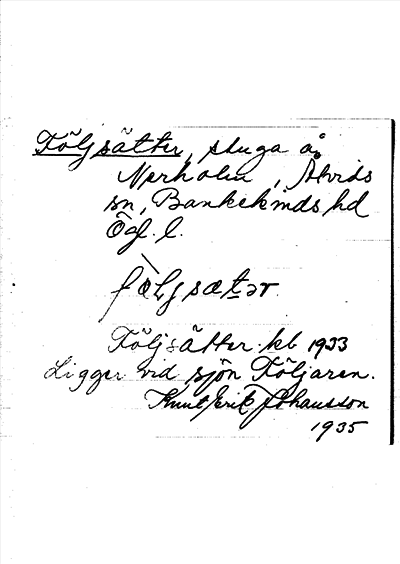 Följsätter, stuga å
Norrholm, Åtvids
sn, Bankekinds hd
Ög. l.
fòljsætər
Följsätter kb 1933
Ligger vid sjön Följaren.
Knut Erik Johansson
1935